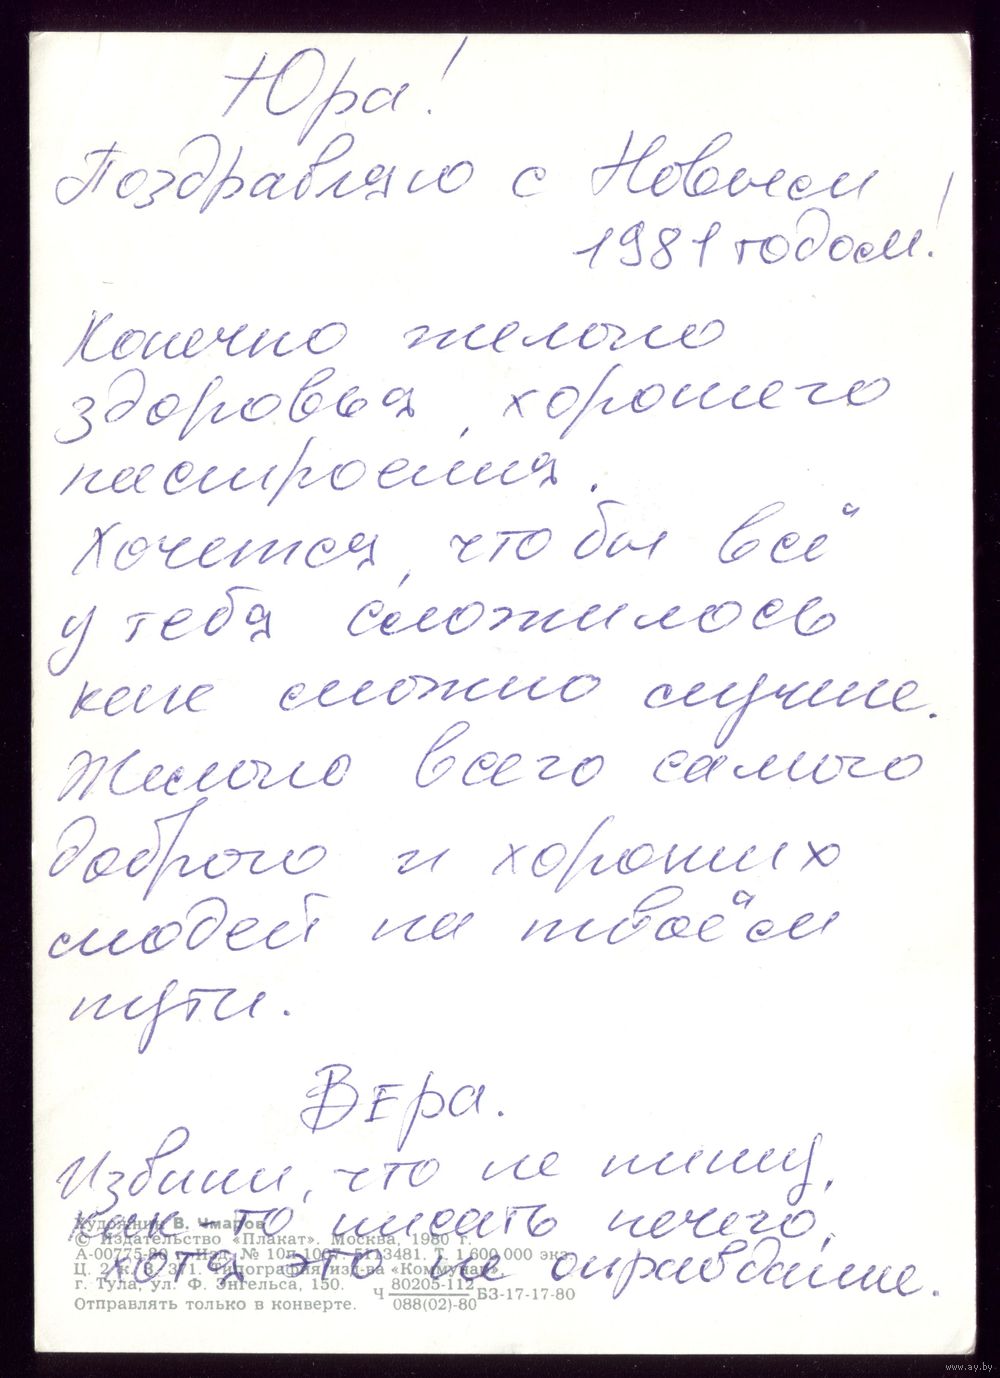 Юра!
Поздравляю с Новым
1981 годом!
Конечно желаю
здоровья, хорошего
настроения.
Хочется, чтобы всё
у тебя сложилось
как можно лучше.
Желаю всего самого
доброго и хороших
людей на твоём
пути.
Вера.
Извини, что не пишу,
как-то писать нечего,
хотя это не оправдание.
Художник В. Чмаров
© Издательство «Плакат». Москва, 1980 г.
А-00775-80 г. Изд. № 10п-1067. 5113481. Т. 1 600 000 экз.
Ц. 2 к. З. 371. Типография изд-ва «Коммунар».
г. Тула, ул. Ф. Энгельса, 150. Ч 80205-112 БЗ-17-17-80
Отправлять только в конверте. 088(02)-80
www.ay.by